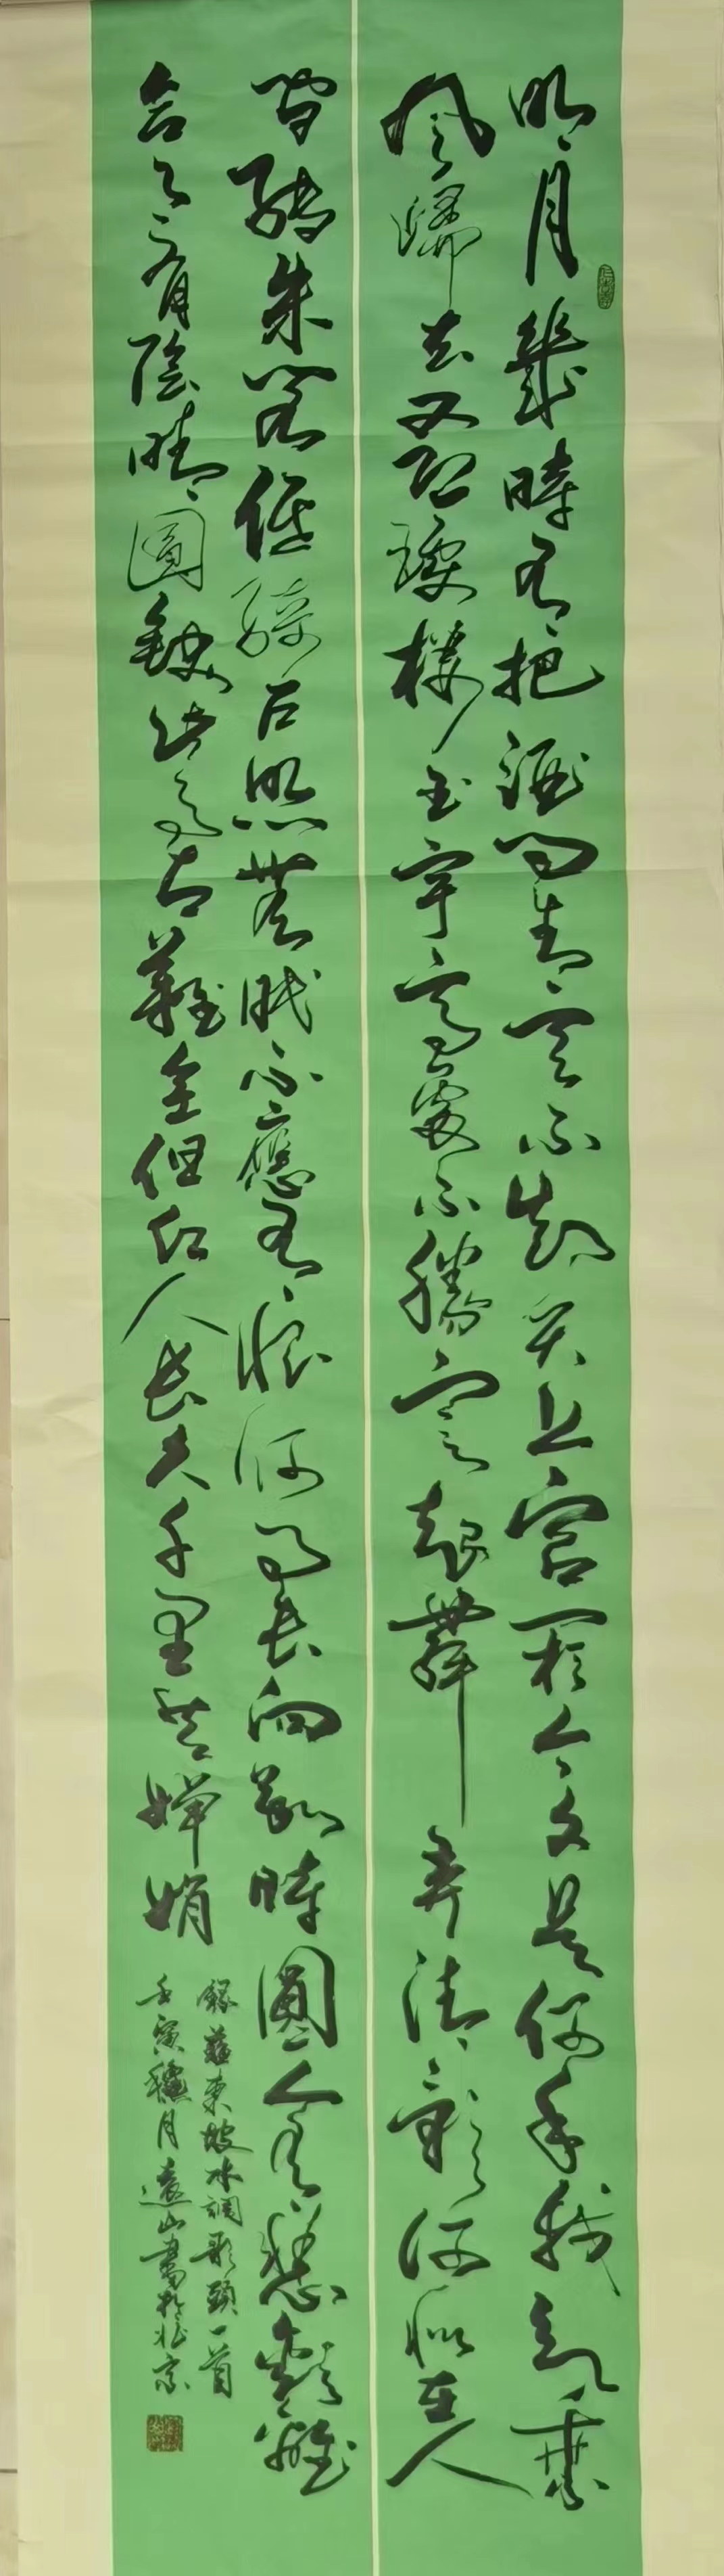 明月幾時有把酒問青天不知天上宮闕今夕是何年我欲乘
風歸去又恐瓊樓玉宇高處不勝寒起舞弄清影何似在人
間轉朱閣低綺戶照無眠不應有恨何事長向別時圓人有悲歡離
合月有陰晴圓缺此事古難全但願人長久千里共嬋娟
錄蘇東坡水調歌頭一首
壬寅穐月遠山書於北京